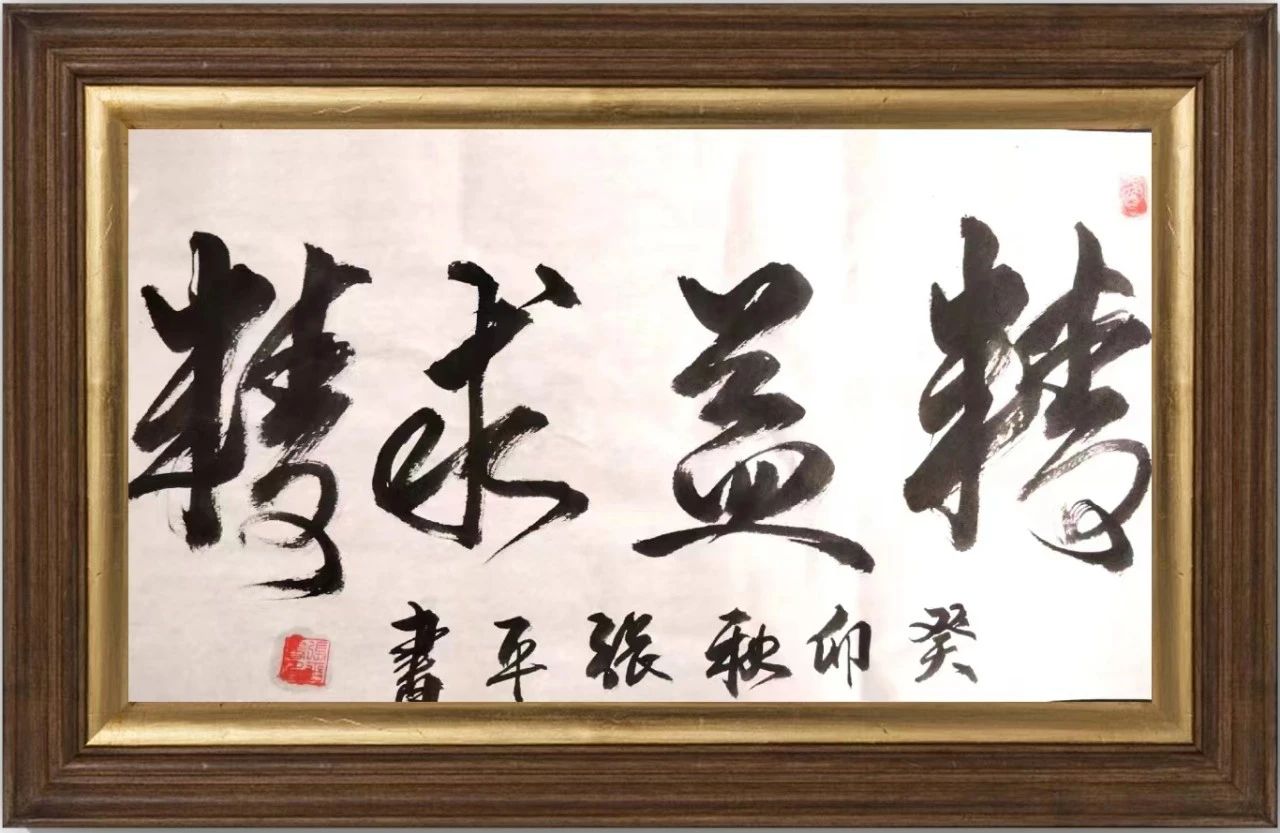 精益求精
癸卯秋張平書